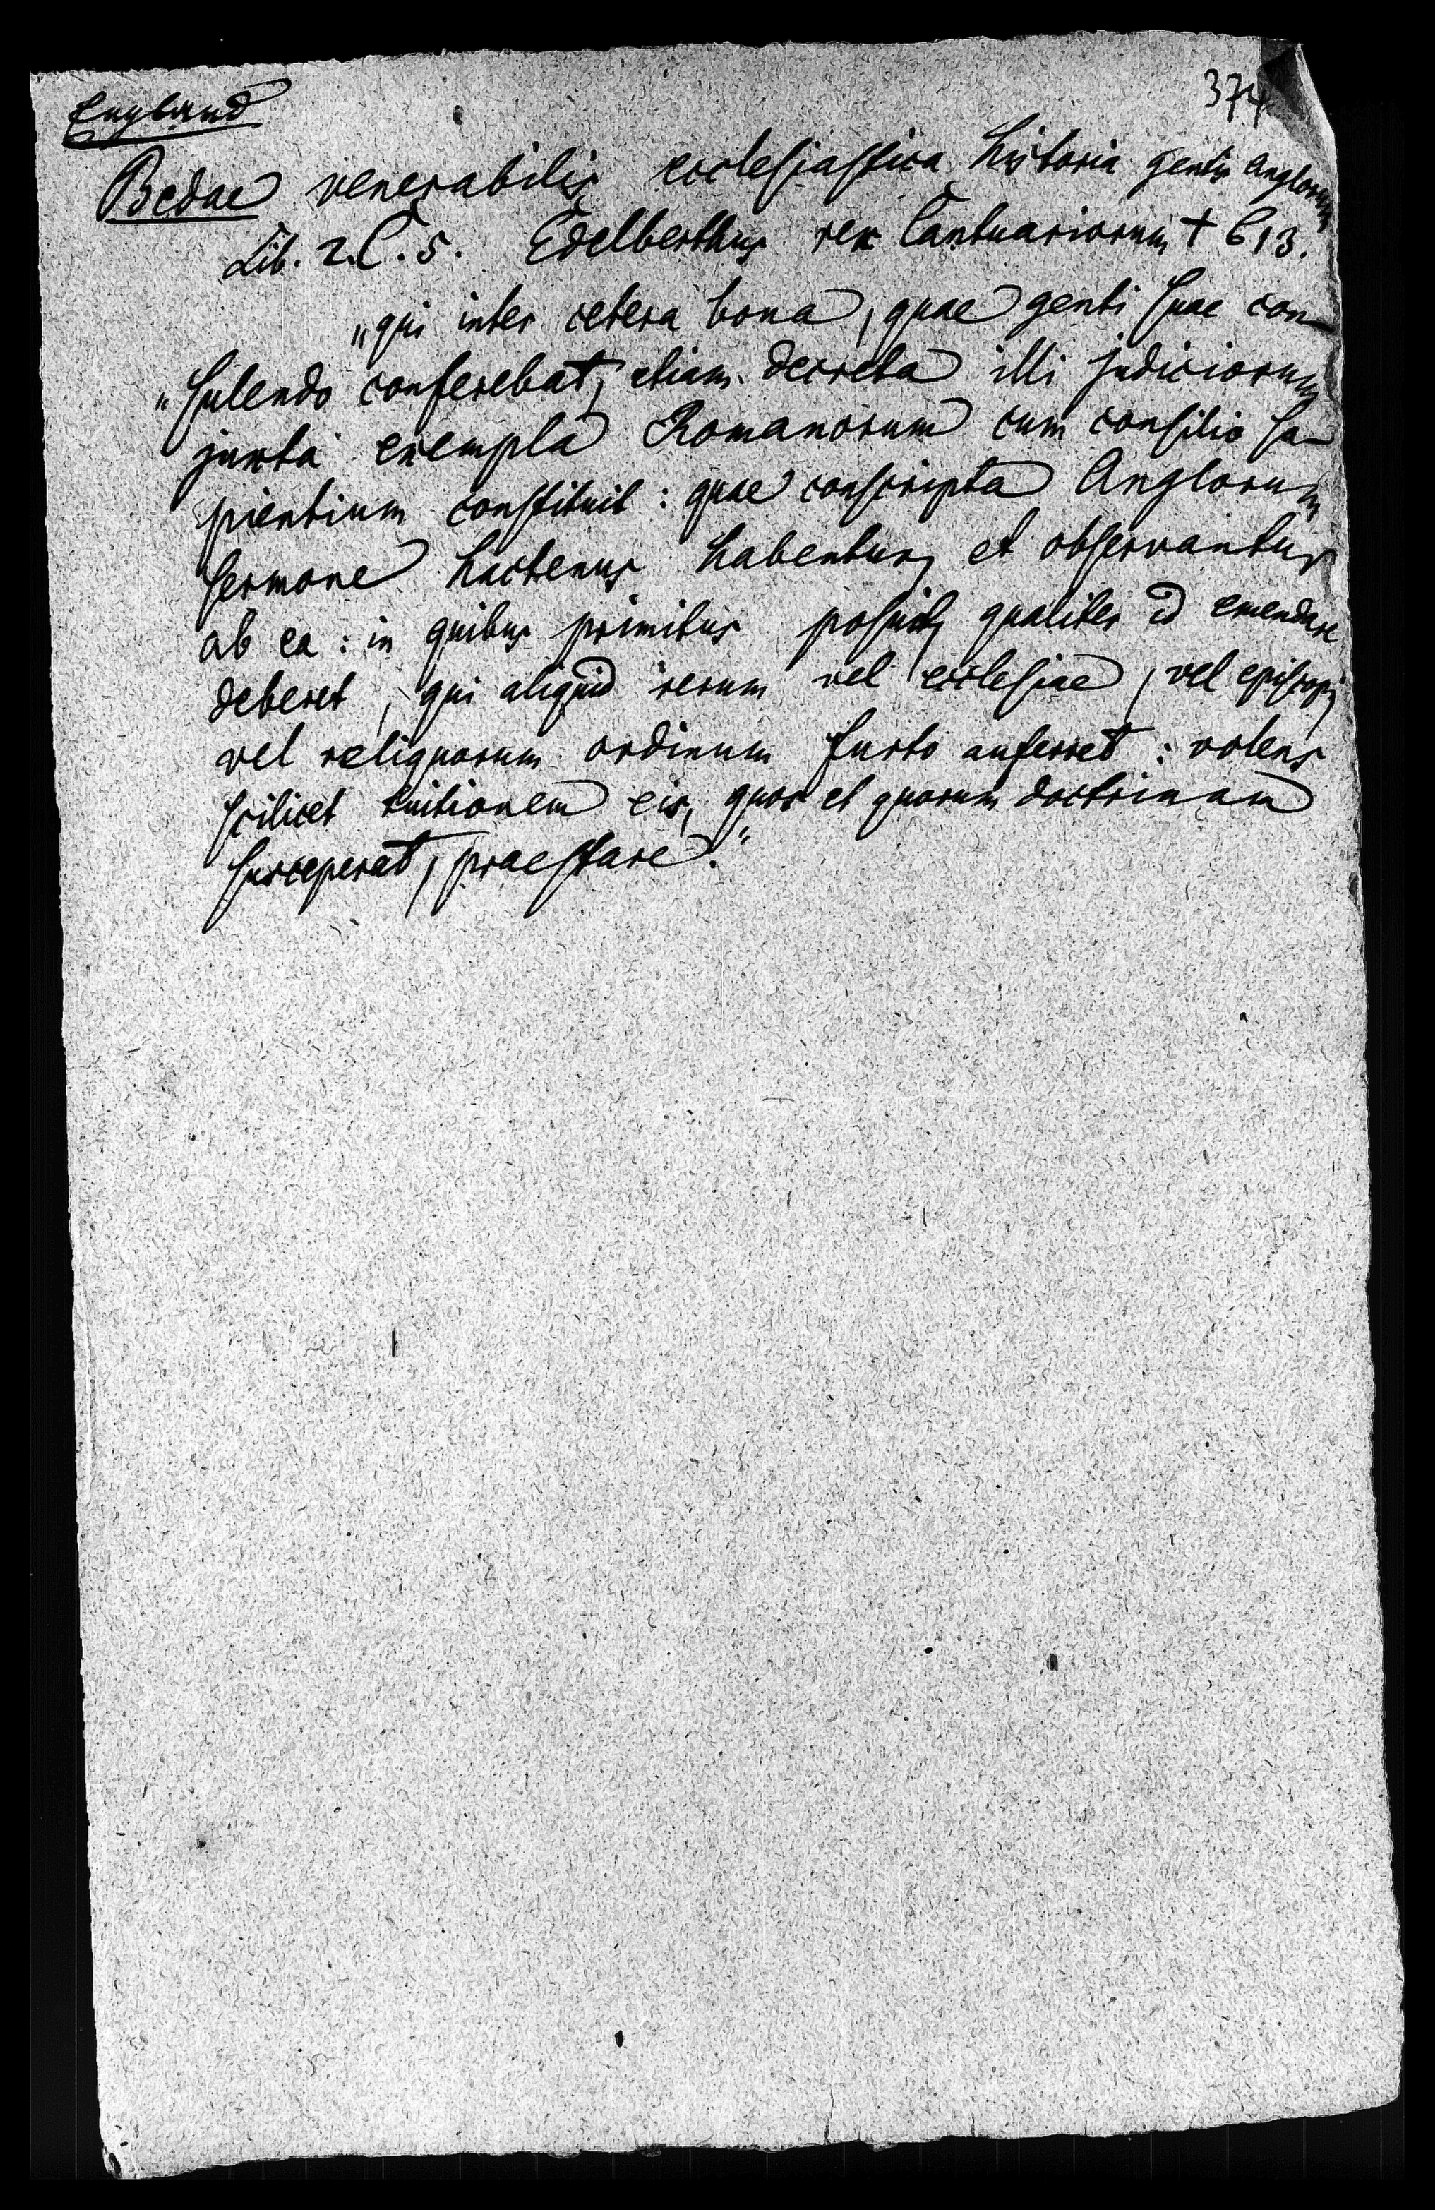 374
England
Bedae venerabilis ecclesiastica historia gentis Anglorum
Lib. 2. C. 5. Edelberthus rex Cantuariorum † 613.
„qui inter cetera bona, quae genti suae con-
„sulendo conferebat, etiam decreta illi judiciorum
juxta exempla Romanorum cum consilio sa-
pientium constituit: quae conscripta Anglorum
sermone hactenus habentur, et observantur
ab ea: in quibus primitus posuit, qualiter id emendare
deberet, qui aliquid rerum vel ecclesiae, vel episcopi,
vel reliquorum ordinum furto auferret: volens
scilicet tuitionem eis, quos et quorum doctrinam
susceperat, praestare."